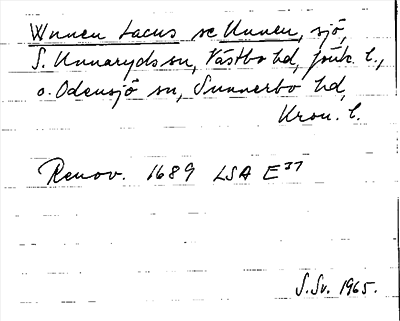 Wnnen Lacus se Unnen, sjö,
S. Unnaryds sn, Västbo hd, Jönk. l.,
o. Odensjö sn, Sunnerbo hd,
Kron. l.
Renov. 1689 LSA E37
S.Sv. 1965.